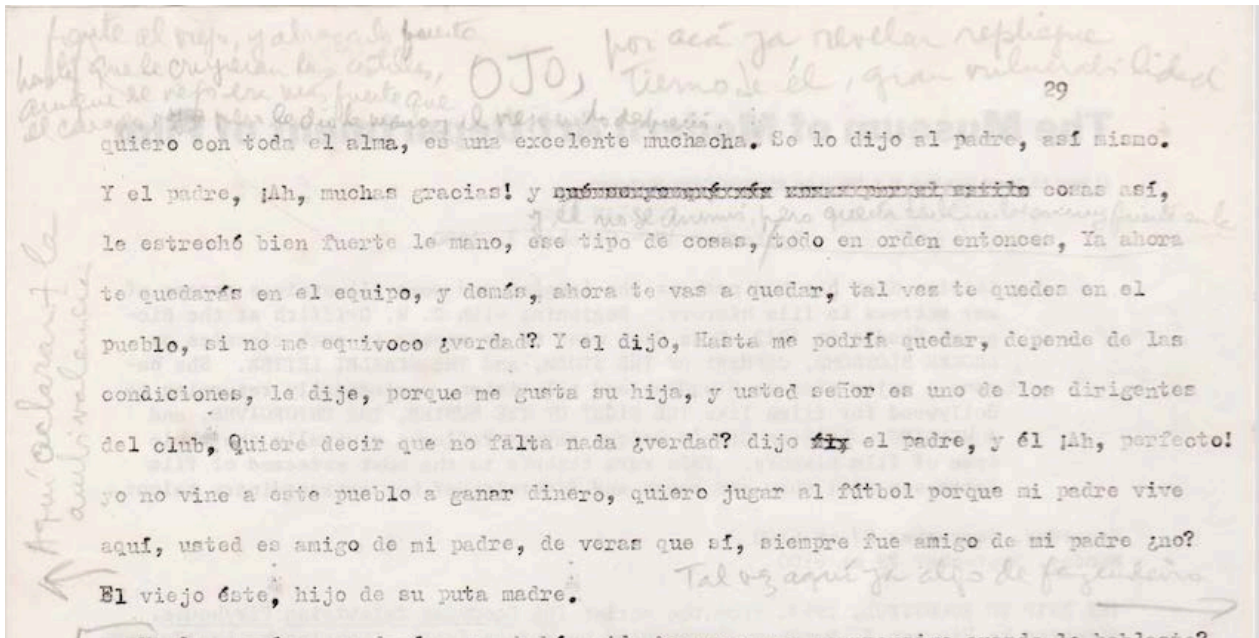 fuerte al viejo, y abrazarlo fuerte
hasta que le crujieran las costillas,
aunque el viejo era más fuerte que
OJO, por acá ya revelar repliegue
tierno de él, gran vulnerabilidad
29
quiero con toda el alma, es una excelente muchacha. Se lo dijo al padre, así mismo.
Y el padre, ¡Ah, muchas gracias! y cosas así,
y él no se animó, pero queda
le estrechó bien fuerte le mano, ese tipo de cosas, todo en orden entonces, Ya ahora
te quedarás en el equipo, y demás, ahora te vas a quedar, tal vez te quedes en el
pueblo, si no me equivoco ¿verdad? Y el dijo, Hasta me podría quedar, depende de las
condiciones, le dije, porque me gusta su hija, y usted señor es uno de los dirigentes
del club, Quiere decir que no falta nada ¿verdad? dijo el padre, y él ¡Ah, perfecto!
yo no vine a este pueblo a ganar dinero, quiero jugar al fútbol porque mi padre vive
aquí, usted es amigo de mi padre, de veras que sí, siempre fue amigo de mi padre ¿no?
Tal vez aquí ya algo de fazendeiro
El viejo éste, hijo de su puta madre.
Aquí aclarar + la
ambivalencia